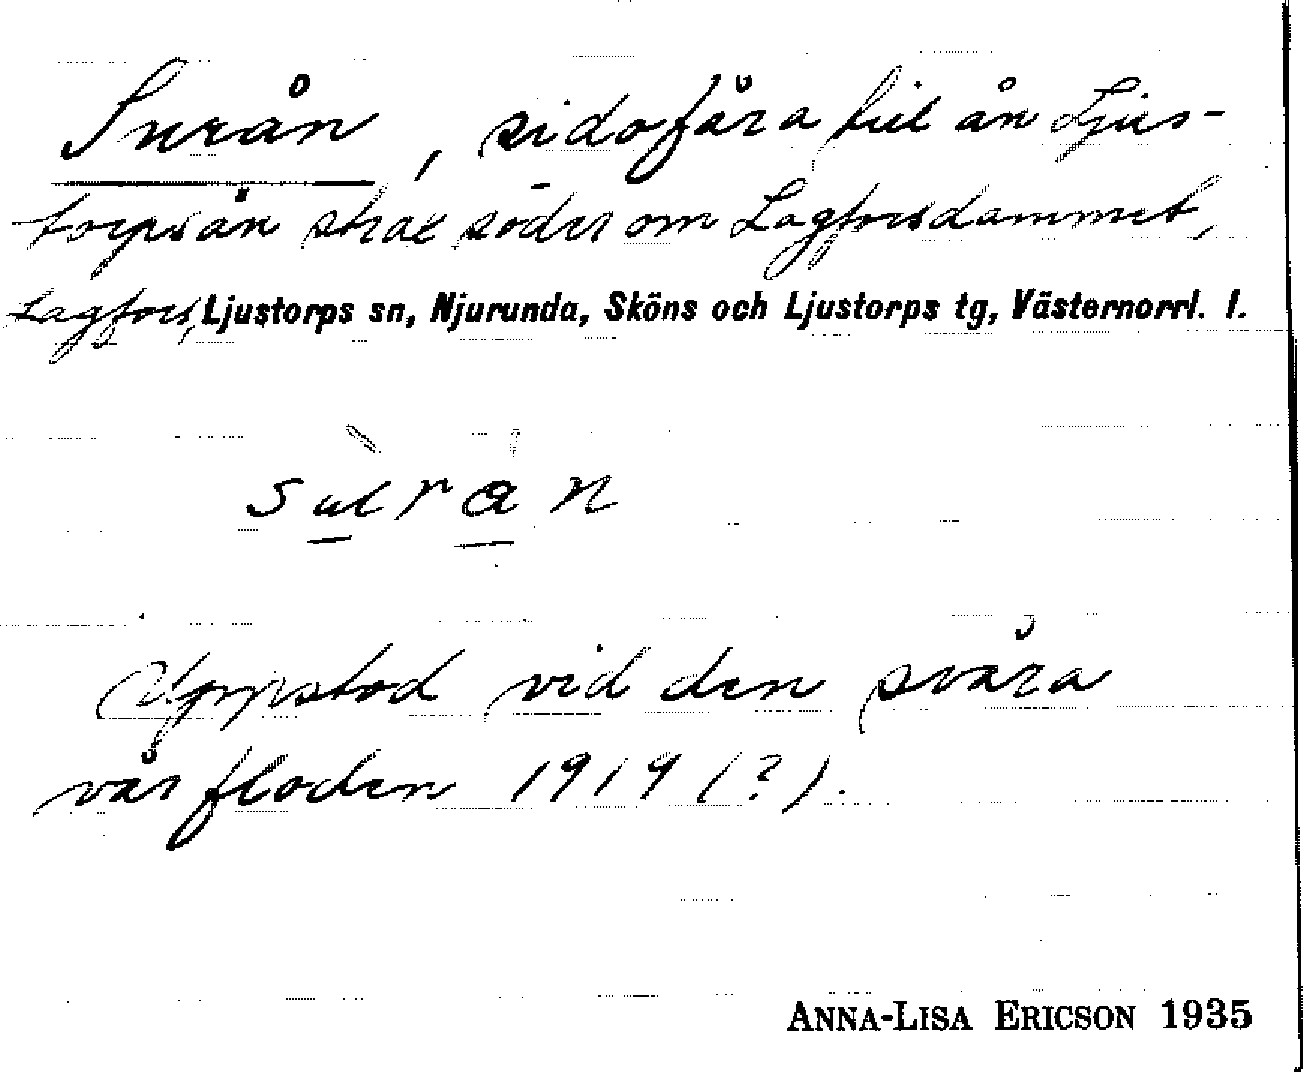 Surån, sidofåra till ån Ljus-
torpsån strax söder om Lagforsdammet,
Lagfors, Ljustorps sn, Njurunda, Sköns och Ljustorps tg, Västernorrl. l.
Uppstod vid den svåra
vårfloden 1919 (?).
ANNA-LISA ERICSON 1935